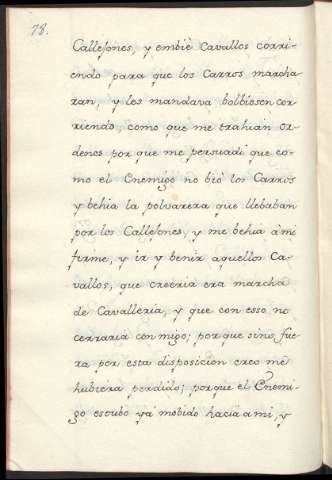 78.
Callejones, y embiè Cavallos corri-
endo para que los Carros marcha-
ran, y les mandava bolbiesen cor-
riendo, como que me trahian or-
denes por que me persuadi que co-
mo el Enemigo no biò los Carros
y behia la polvarera que llebaban
por los Callejones, y me behia a mi
firme, y ir y benir aquellos Ca-
vallos, que creeria era marcha
de Cavalleria, y que con esso no
cerraria con migo; por que sino fue
ra por esta disposicion creo me
hubiera perdido; porque el Enemi-
go estubo ya mobido hacia a mi, y